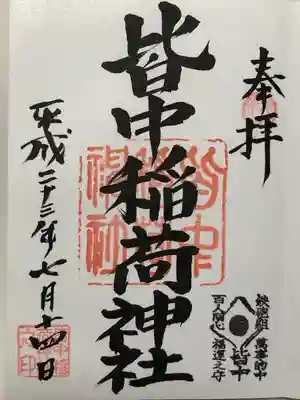 奉拝
皆中稲荷神社
平成二十三年七月十四日
皆中稲荷神社
鉄砲組
百人同心
萬事的中
福運之守
皆中